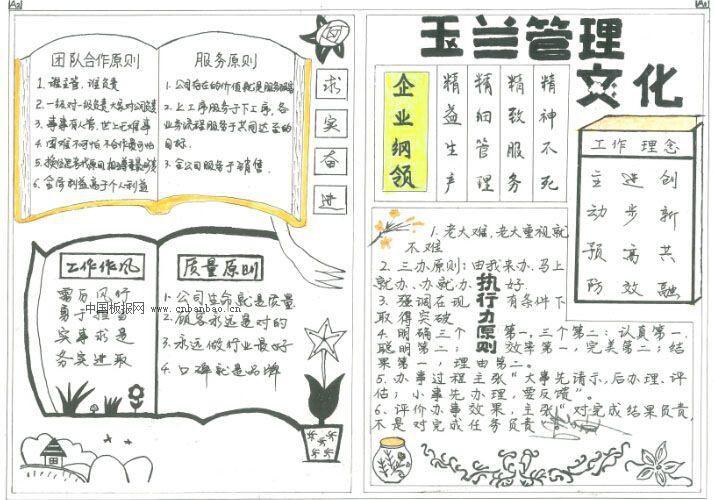 团队合作原则
1. 谁主管,谁负责
2. 一级对一级负责
3. 事事有人管,世上无难事
4. 困难不可怕 不合作最可怕
6. 全局利益高于个人利益
服务原则
1. 公司存在的价值就是服务
2. 上工序服务于下工序,各
业务流程服务于共同达至的
目标.
3. 全公司服务于销售.
求
实
奋
进
工作作风
雷厉风行
勇于担当
实事求是
务实进取
中国板报网
www.cnbanbao.cn
质量原则
1. 公司生命就是质量
2. 顾客永远是对的
3. 永远做行业最好
4. 口碑就是品牌
玉兰管理
文化
企业纲领
精益生产
精细管理
精致服务
精神不死
工作理念
主 进 创
动 步 新
预 高 共
防 效 融
执行力原则
1. 老大难,老大重视就
不难
2. 三办原则:由我来办、马上
就办、办就办 好
3. 强调在现 有条件下
取得突破
4. 明确三个 第一,三个第二:认真第一,
聪明第二; 效率第一,完美第二;结
果第一,理由第二。
5. 办事过程主张“大事先请示,后办理、评
估;小事先办理,要反馈”。
6. 评价办事效果,主张“对完成结果负责,
不是对完成任务负责